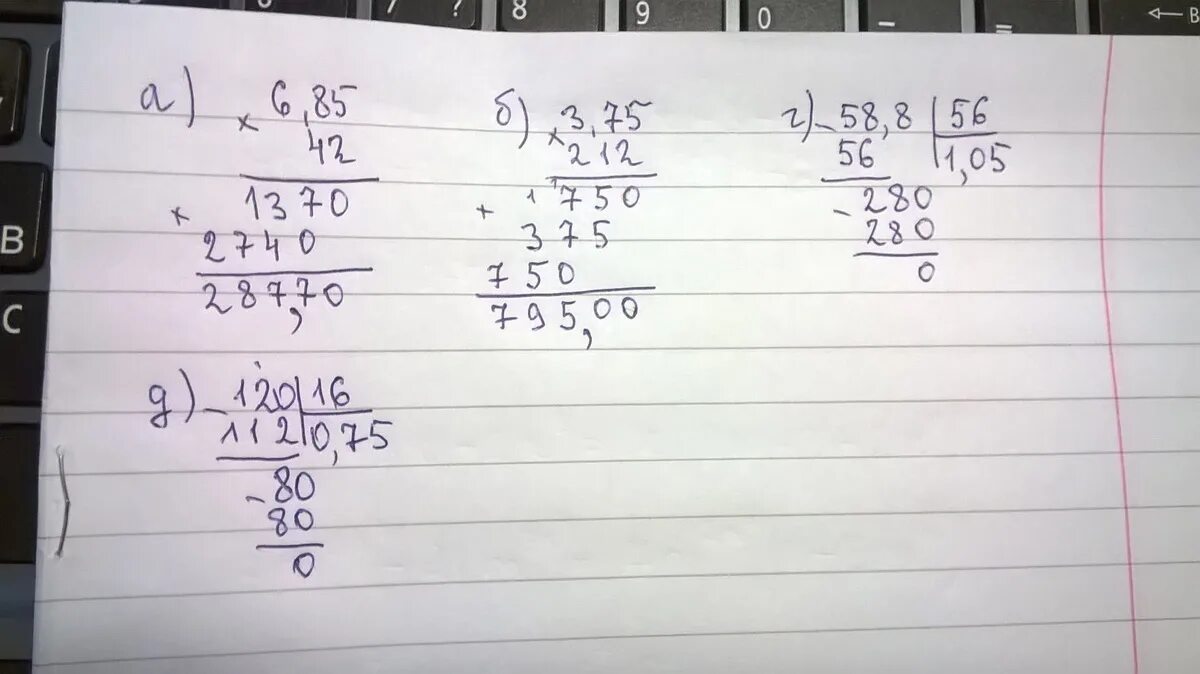 7 ? 8 9 0 - = ← B
B
C
а)
× 6,85
42
1370
× 2740
2877,70
б)
× 3,75
212
+ 1 1 750
375
750
795,00
г) - 58,8 | 56
56 | 1,05
- 280
280
0
д) - 120 | 16
112 | 0,75
- 80
80
0